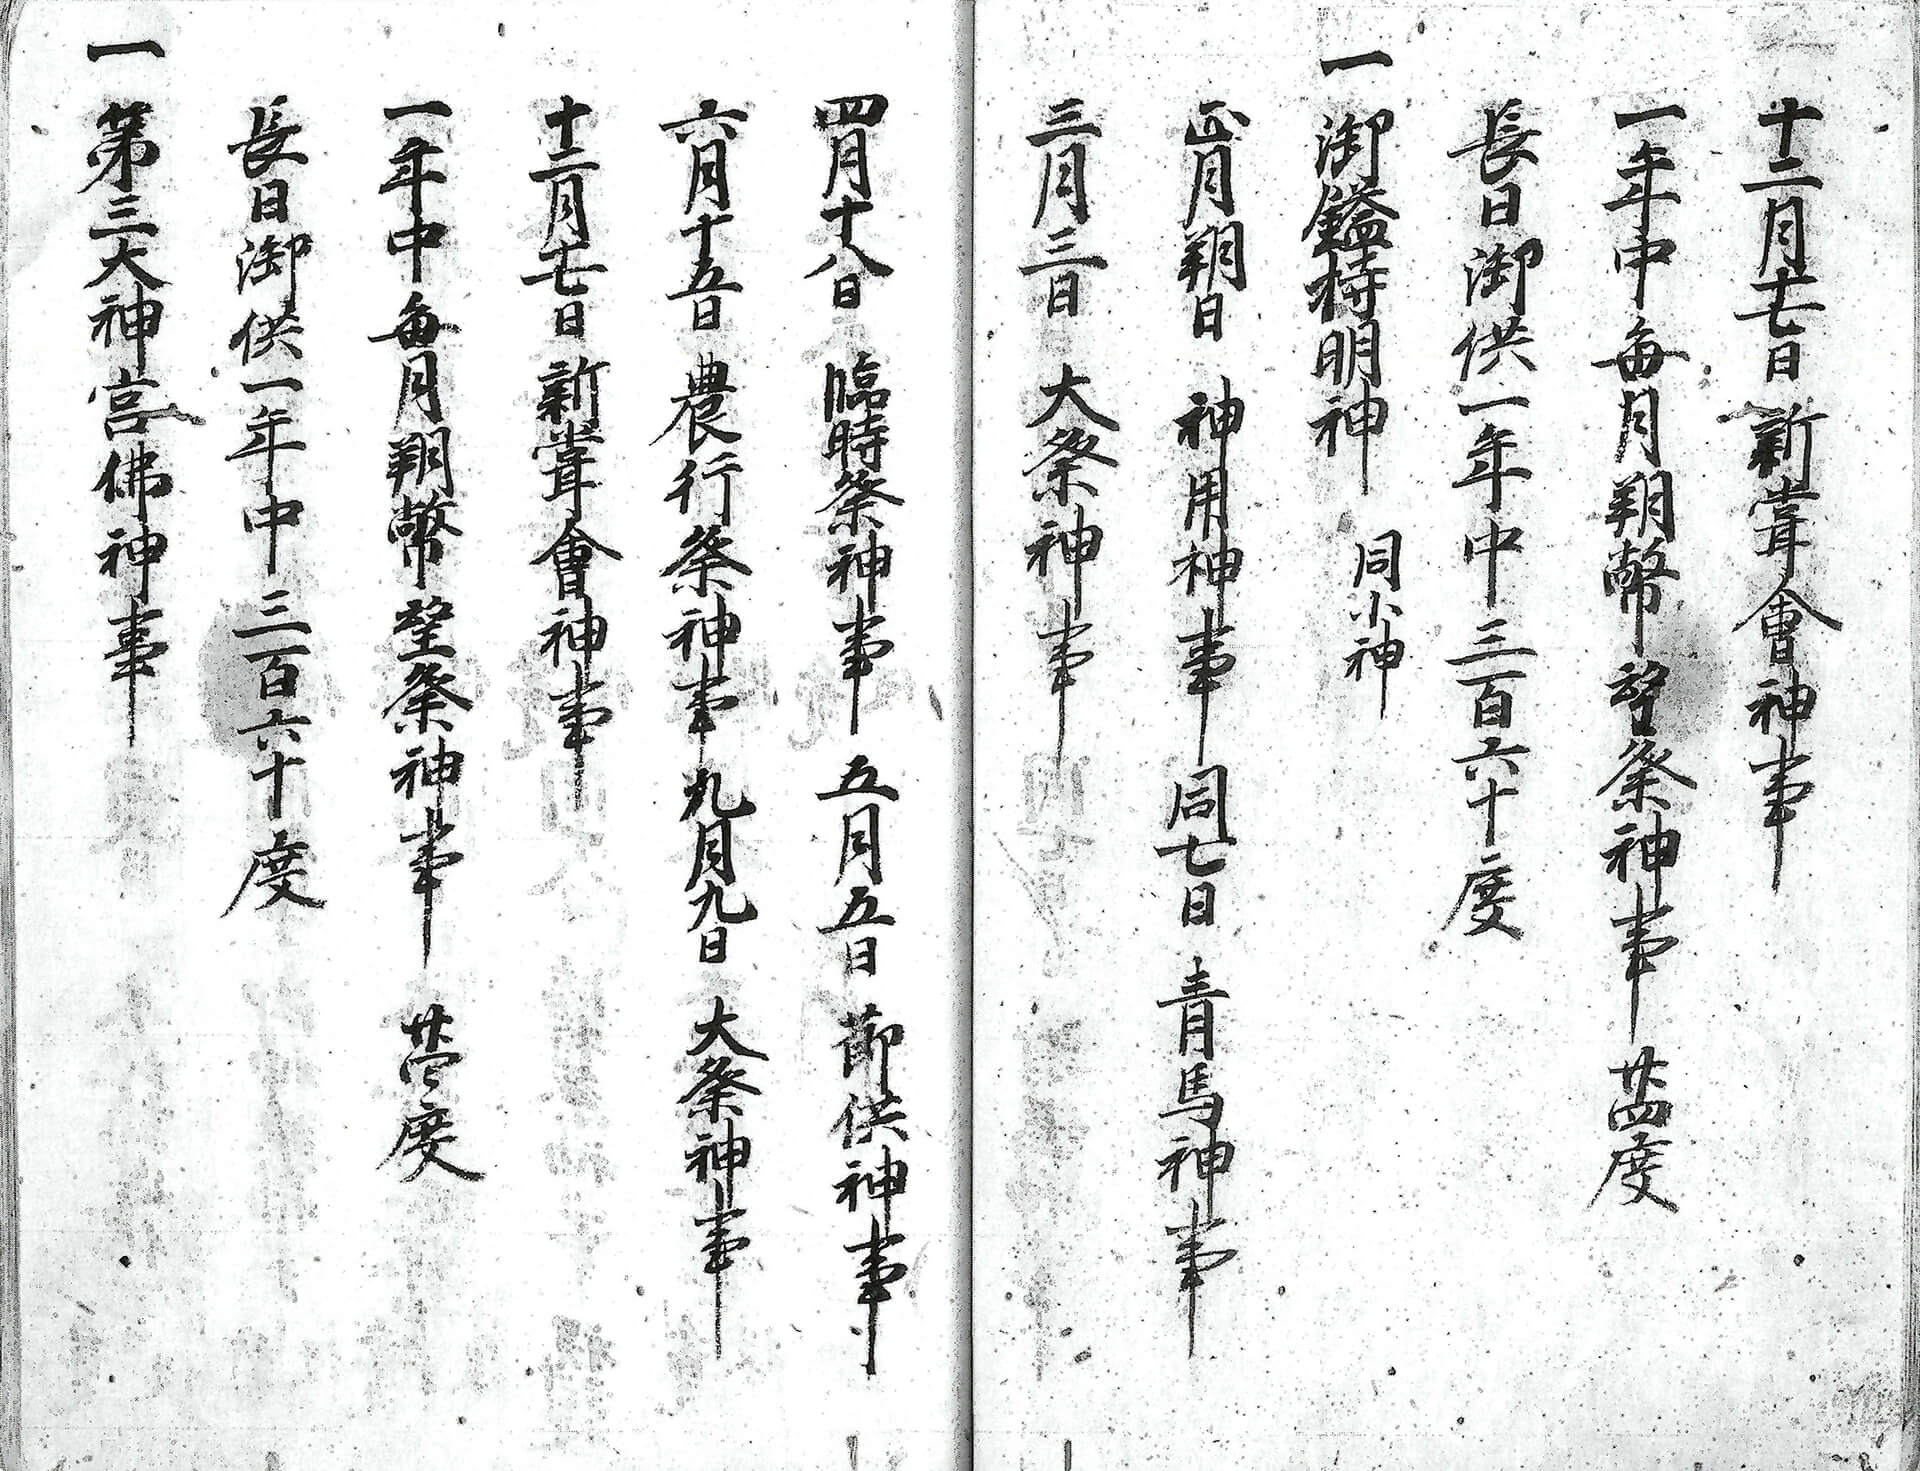 十二月十七日 新嘗會神事
一年中毎月朔幣望祭神事 廿四度
長日御供一年中三百六十度
一 御鎰持明神 同小神
正月朔日 神用神事 同七日 青馬神事
三月三日 大祭神事
四月十八日 臨時祭神事 五月五日 御供神事
六月十五日 農行祭神事 九月九日 大祭神事
十二月十七日 新嘗會神事
一年中毎月朔幣望祭神事 廿四度
長日御供一年中三百六十度
一 第三大神宮佛神事